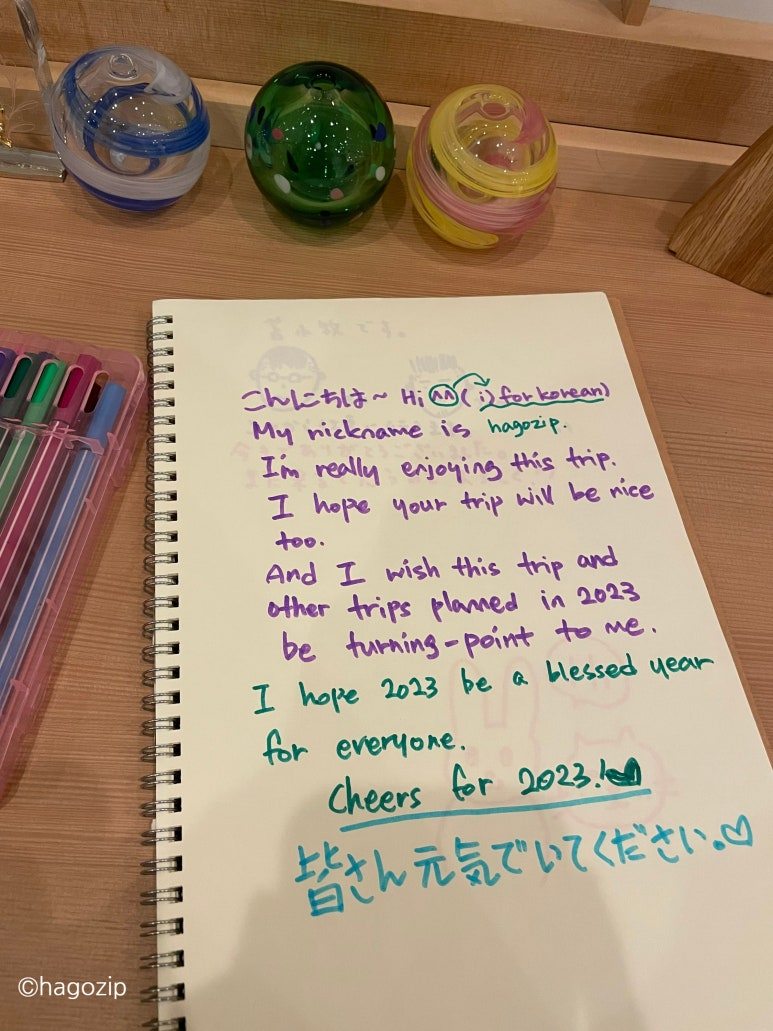 こんにちは~ Hi ^^ (i) for korean)
My nickname is hagozip.
I'm really enjoying this trip.
I hope your trip will be nice
too.
And I wish this trip and
other trips planned in 2023
be turning-point to me.
I hope 2023 be a blessed year
for everyone.
Cheers for 2023!
皆さん元気でいてください。♡
©hagozip